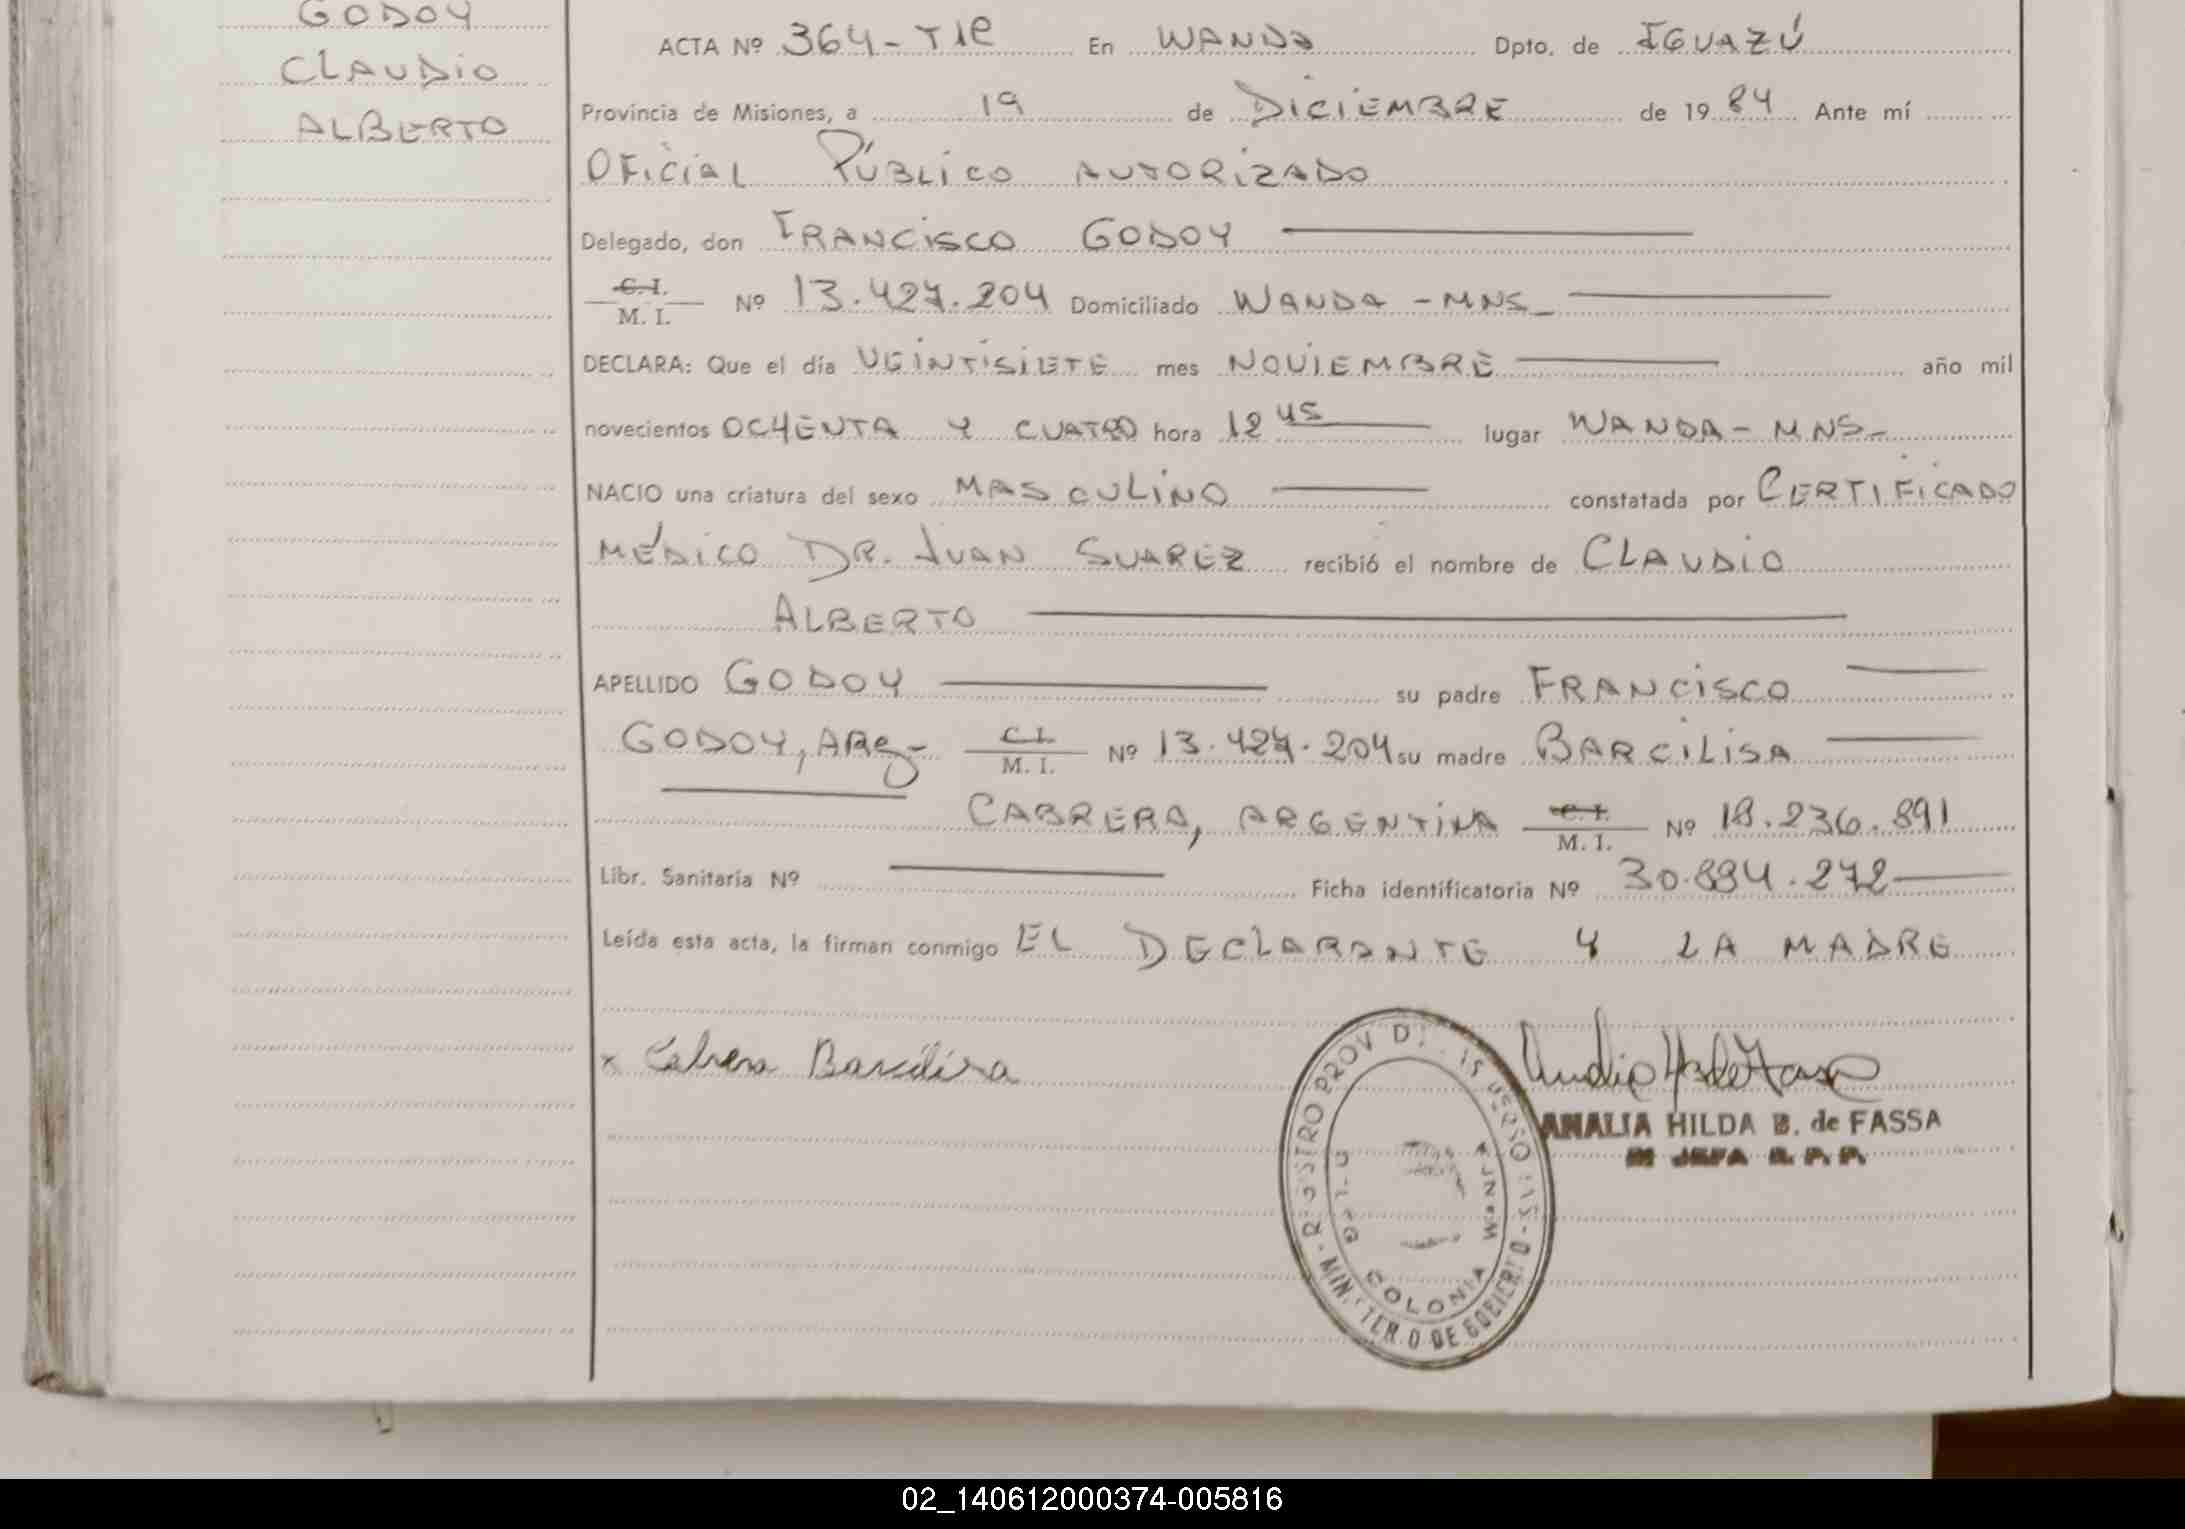 GODOY
CLAUDIO
ALBERTO
ACTA Nº 364-TIR En WANDA Dpto. de IGUAZÚ
Provincia de Misiones, a 19 de DICIEMBRE de 1984 Ante mí
OFICIAL PÚBLICO AUTORIZADO
Delegado, don FRANCISCO GODOY
C. I.
M. I. Nº 13.427.204 Domiciliado WANDA - MNS_
DECLARA: Que el día VEINTISIETE mes NOVIEMBRE año mil
novecientos OCHENTA Y CUATRO hora 12 45 lugar WANDA - MNS-
NACIO una criatura del sexo MASCULINO constatada por CERTIFICADO
MÉDICO DR. JUAN SUAREZ recibió el nombre de CLAUDIO
ALBERTO
APELLIDO GODOY su padre FRANCISCO
GODOY, ARG- C. I. M. I. Nº 13.427.204 su madre BARCILISA
CABRERA, ARGENTINA C. I. M. I. Nº 18.236.891
Libr. Sanitaria Nº Ficha identificatoria Nº 30.894.272
Leída esta acta, la firman conmigo EL DECLARANTE Y LA MADRE
x Cabrera Barcilisa
REGISTRO PROV DE
MINISTERIO DE GOBIERNO
COLONIA WANDA
AMALIA HILDA B. de FASSA
JEFA R. P. P.
02_140612000374-005816